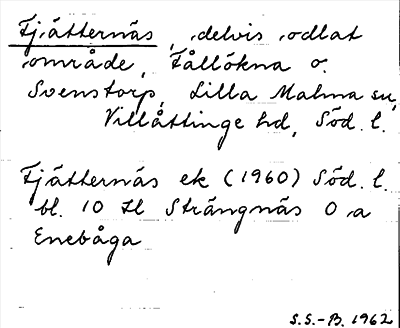 Fjätternäs, delvis odlat
område, Fållökna o.
Svenstorp, Lilla Malma sn,
Villåttinge hd, Söd. l.
Fjätternäs ek (1960) Söd. l.
bl. 10 H Strängnäs O a
Enebåga
S.S.-B. 1962